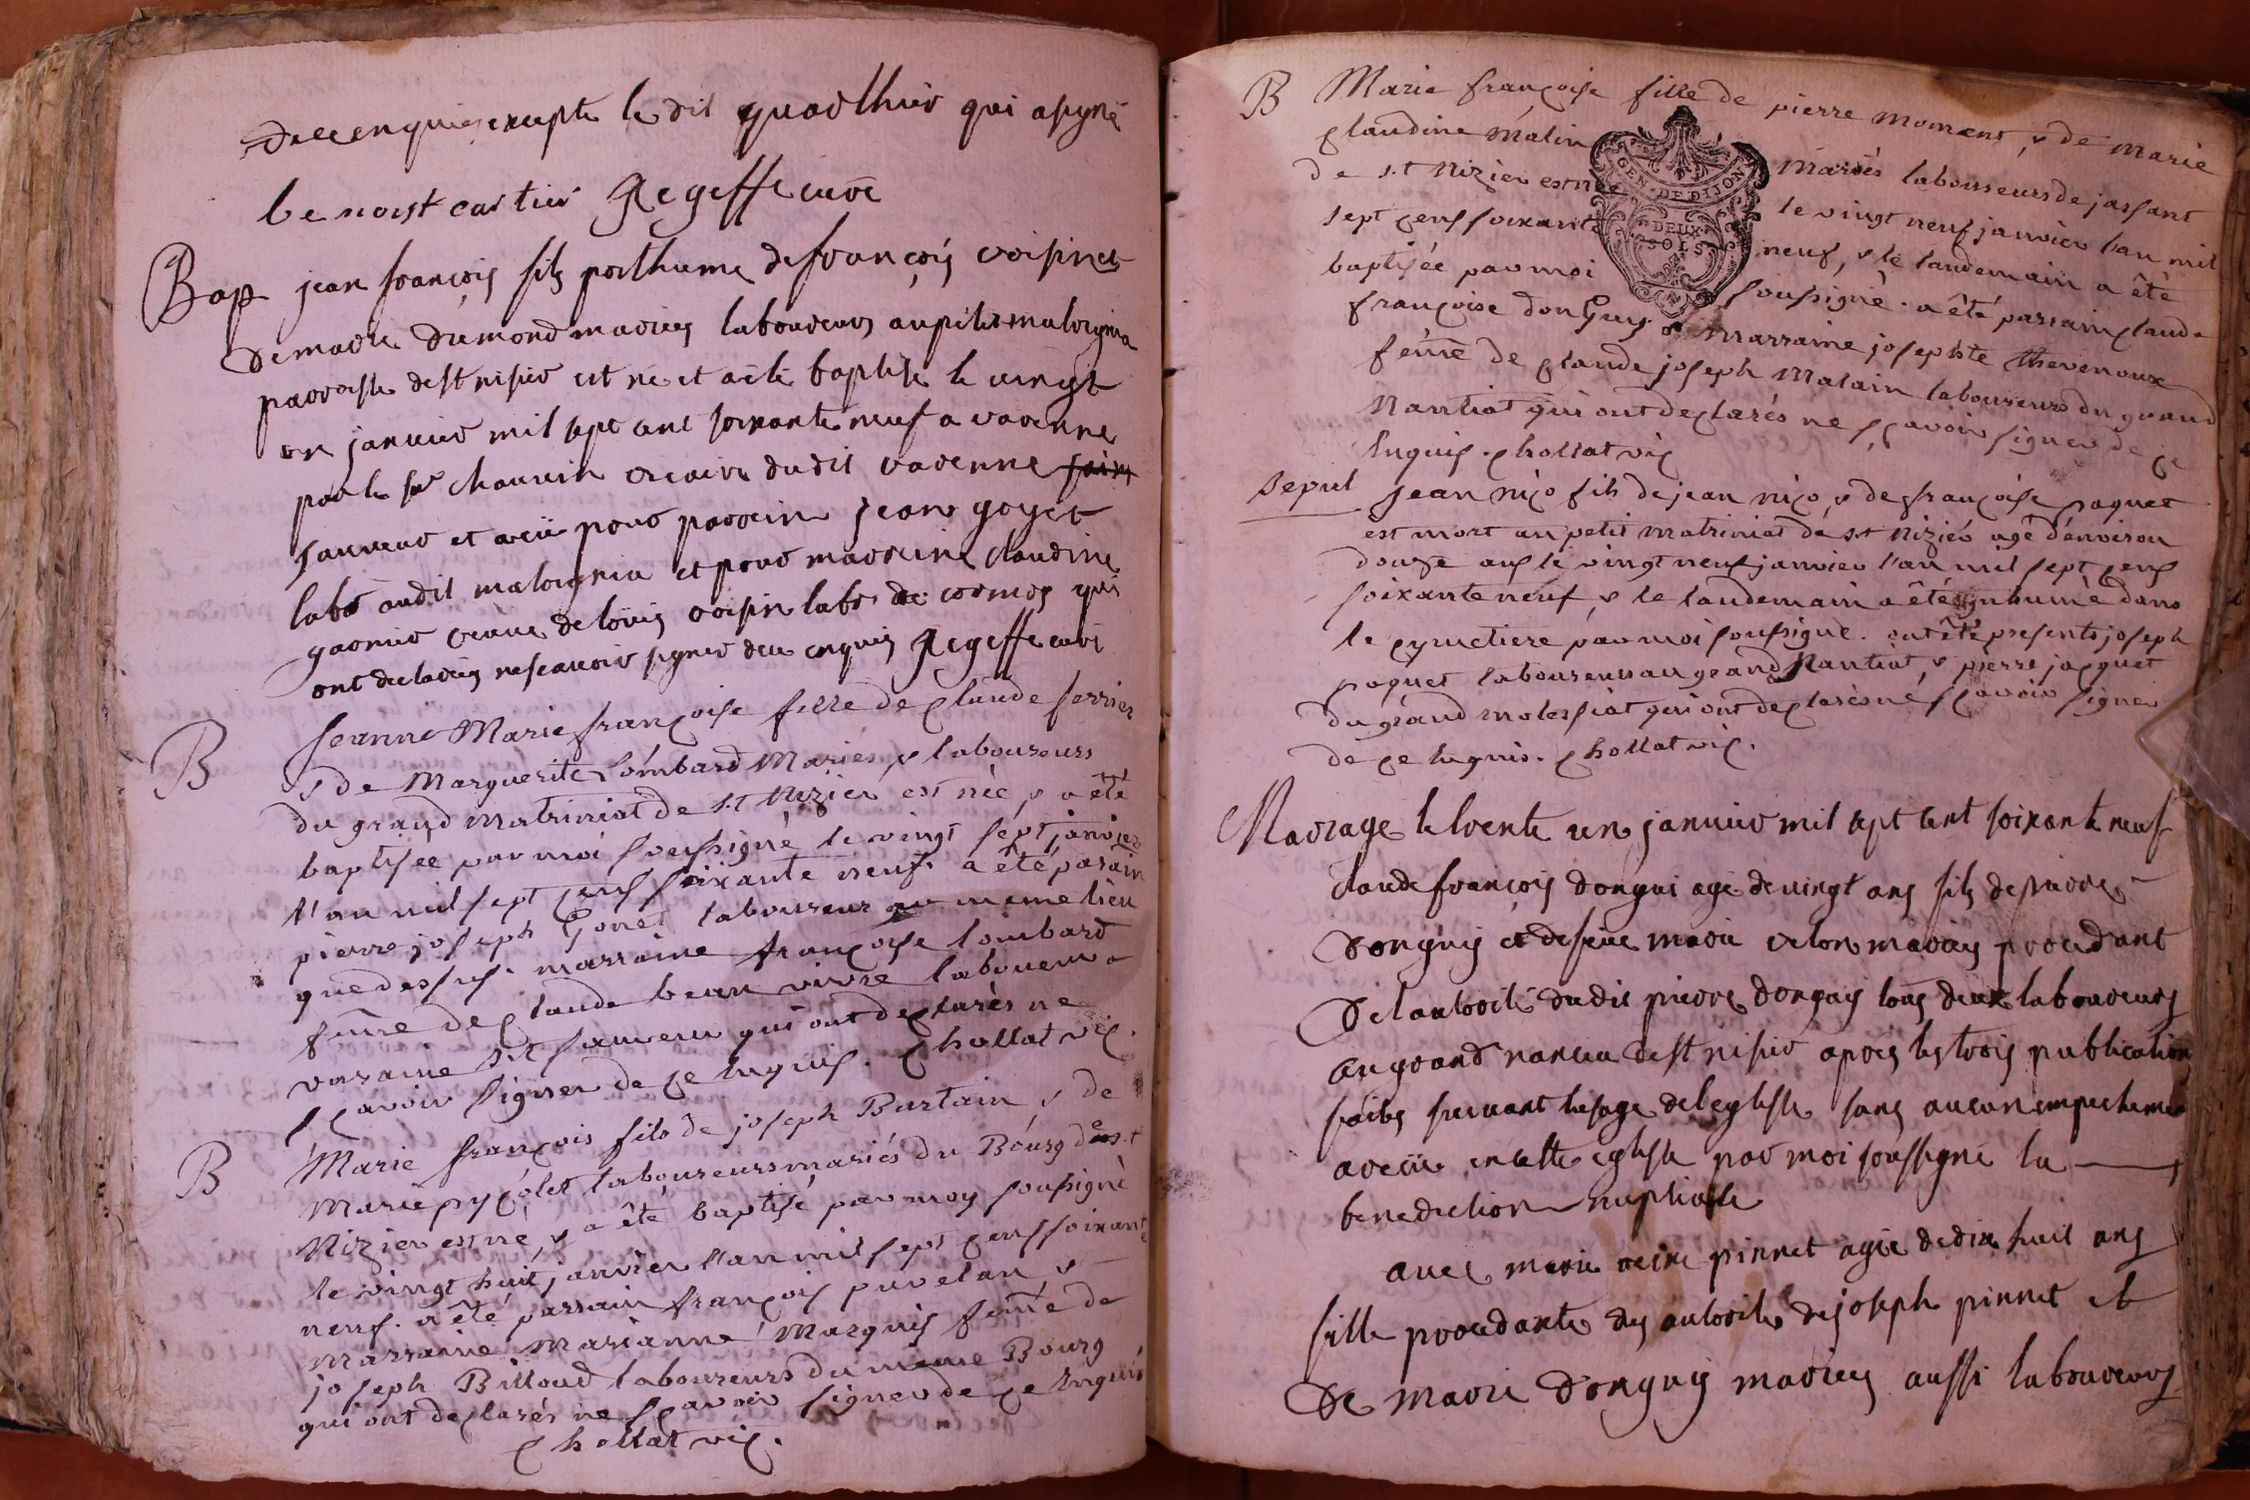 de ce enquis excepté le dit quarthier qui a signé
benoist cartier gegeffe curé
Bap jean françois fils posthume de françois voisinet
de marie dremond mariés laboureurs au petit malrignia
paroisse de st nisier est né et a été baptisé le vingt
un janvier mil sept cent soixante neuf a varenne
par le sr chauvin vicaire dudit varenne saint
sauveur et a eu pour parrain jean goyet
labr audit malrignia et pour marreine claudine
garnier veuve de louis voisin labr de cormoz qui
ont declarés ne scavoir signer de ce enquis gegeffe curé
B Jeanne Marie françoise fille de claude ferrier
& de Marguerite Lombard Mariés, & laboureurs
du grand Matriniat de s.t Nizier est née, & a êté
baptisée par moi soussigné le vingt sept janvier
l'an mil sept cens soixante neuf. a êté parain
pierre joseph Gonet laboureur au meme lieu
que dessus. marraine françoise Lombard
fem̃e de claude beau vivre laboureur a
varaine s.t sauveur qui ont declarés ne
sçavoir signer de ce enquis. chollat vic.
B Marie françois fils de joseph Burtain & de
Marie pyçolet laboureurs mariés du Bourg de s.t
Nizier est né, & a êté baptisé par moy soussigné
le vingt huit janvier l'an mil sept cens soixante
neuf. a êté parrain françois puvelan, &
marraine marianne Marquis fem̃e de
joseph Billoud laboureurs du meme Bourg
qui ont declarés ne sçavoir signer de ce enquis
chollat vic.
B Marie françoise fille de pierre moment, & de marie
claudine Malin mariés laboureurs de jassant
de s.t Nizier est née le vingt neuf janvier l'an mil
sept cens soixante neuf, & le landemain a êté
baptisée par moi soussigné. a êté parrain claude
françoise donGuy. & marraine josephte thevenoux
fem̃e de claude joseph Malain laboureurs du grand
Nantiat qui ont declarés ne sçavoir signer de ce
Enquis. chollat vic
GEN. DE DIJON
DEUX
SOLS
Sepul Jean niço fils de jean niço, & de françoise paquet
est mort au petit matriniat de s.t Nizier agé d'environ
douze ans le vingt neuf janvier l'an mil sept cens
soixante neuf, & le landemain a êté inhumé dans
le cymetiere par moi soussigné. ont êté presents joseph
paquet laboureur au grand Nantiat, & pierre jacquet
du grand molessiat qui ont declarés ne sçavoir signer
de ce enquis. chollat vic.
Mariage le trente un janvier mil sept cent soixante neuf
claude françois donguy agé de vingt ans fils de pierre
Donguy et de feüe marie velon mariés procedant
de l'autorité dudit pierre donguy tous deux laboureurs
au grand nancia de st nisier apres les trois publications
faites suivant l'usage de l'eglise sans aucun empechement
a receüe en cette eglise par moi soussigné la
benediction nuptiale
avec marie reine pinnet agée de dix huit ans
fille procedante des autorités de joseph pinnet et
de marie Donguy mariés aussi laboureurs